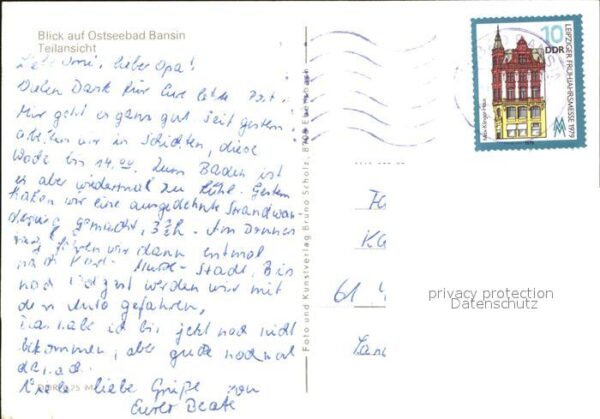 Blick auf Ostseebad Bansin
Teilansicht
Liebe Omi, lieber Opa!
Vielen Dank für Eure letzte Post.
Mir geht es ganz gut. Seit gestern
arbeiten wir in Schichten, diese
Woche bis 14.00. Zum Baden ist
es aber wiedermal zu kühl. Gestern
haben wir eine ausgedehnte Strandwan
derung gemacht, 3½h. Am Donners
tag fahren wir dann erstmal
nach Karl-Marx-Stadt. Bis
nach werden wir mit
dem Auto gefahren.
habe ich bis jetzt noch nicht
bekommen, aber
Viele liebe Grüße von
Eurer Beate
Foto und Kunstverlag Bruno Scholz,
10
DDR
LEIPZIGER FRÜHJAHRSMESSE 1979
MM
61
privacy protection
Datenschutz